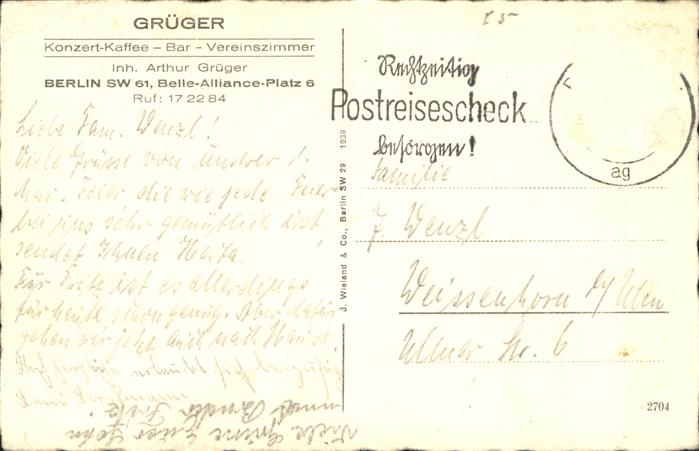 GRÜGER
Konzert-Kaffee – Bar – Vereinszimmer
Inh. Arthur Grüger
BERLIN SW 61, Belle-Alliance-Platz 6
Ruf: 17 22 84
Liebe Fam. Wenzl!
Viele Grüsse von unserer 1.
Mai. Feier die wie jede Feier
bei uns sehr gemütlich ist
sendet Ihnen Herta.
Für Fritz ist es allerdings
für heute schon genug. Aber dafür
gehen wir jetzt auch nach Hause.
erlaubt sich
Viele Grüsse Euer Sohn
und Bruder Fritz
J. Wieland & Co., Berlin SW 29 1939
Rechtzeitig
Postreisescheck
besorgen!
ag
Familie
J. Wenzl
Weissenhorn b/Ulm
Ulmer Str. 6
2704